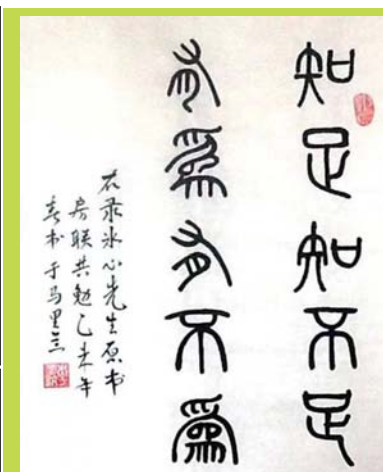 知足知不足
有為有不為
右录冰心先生原书
房联共勉乙未年
春书于马里兰